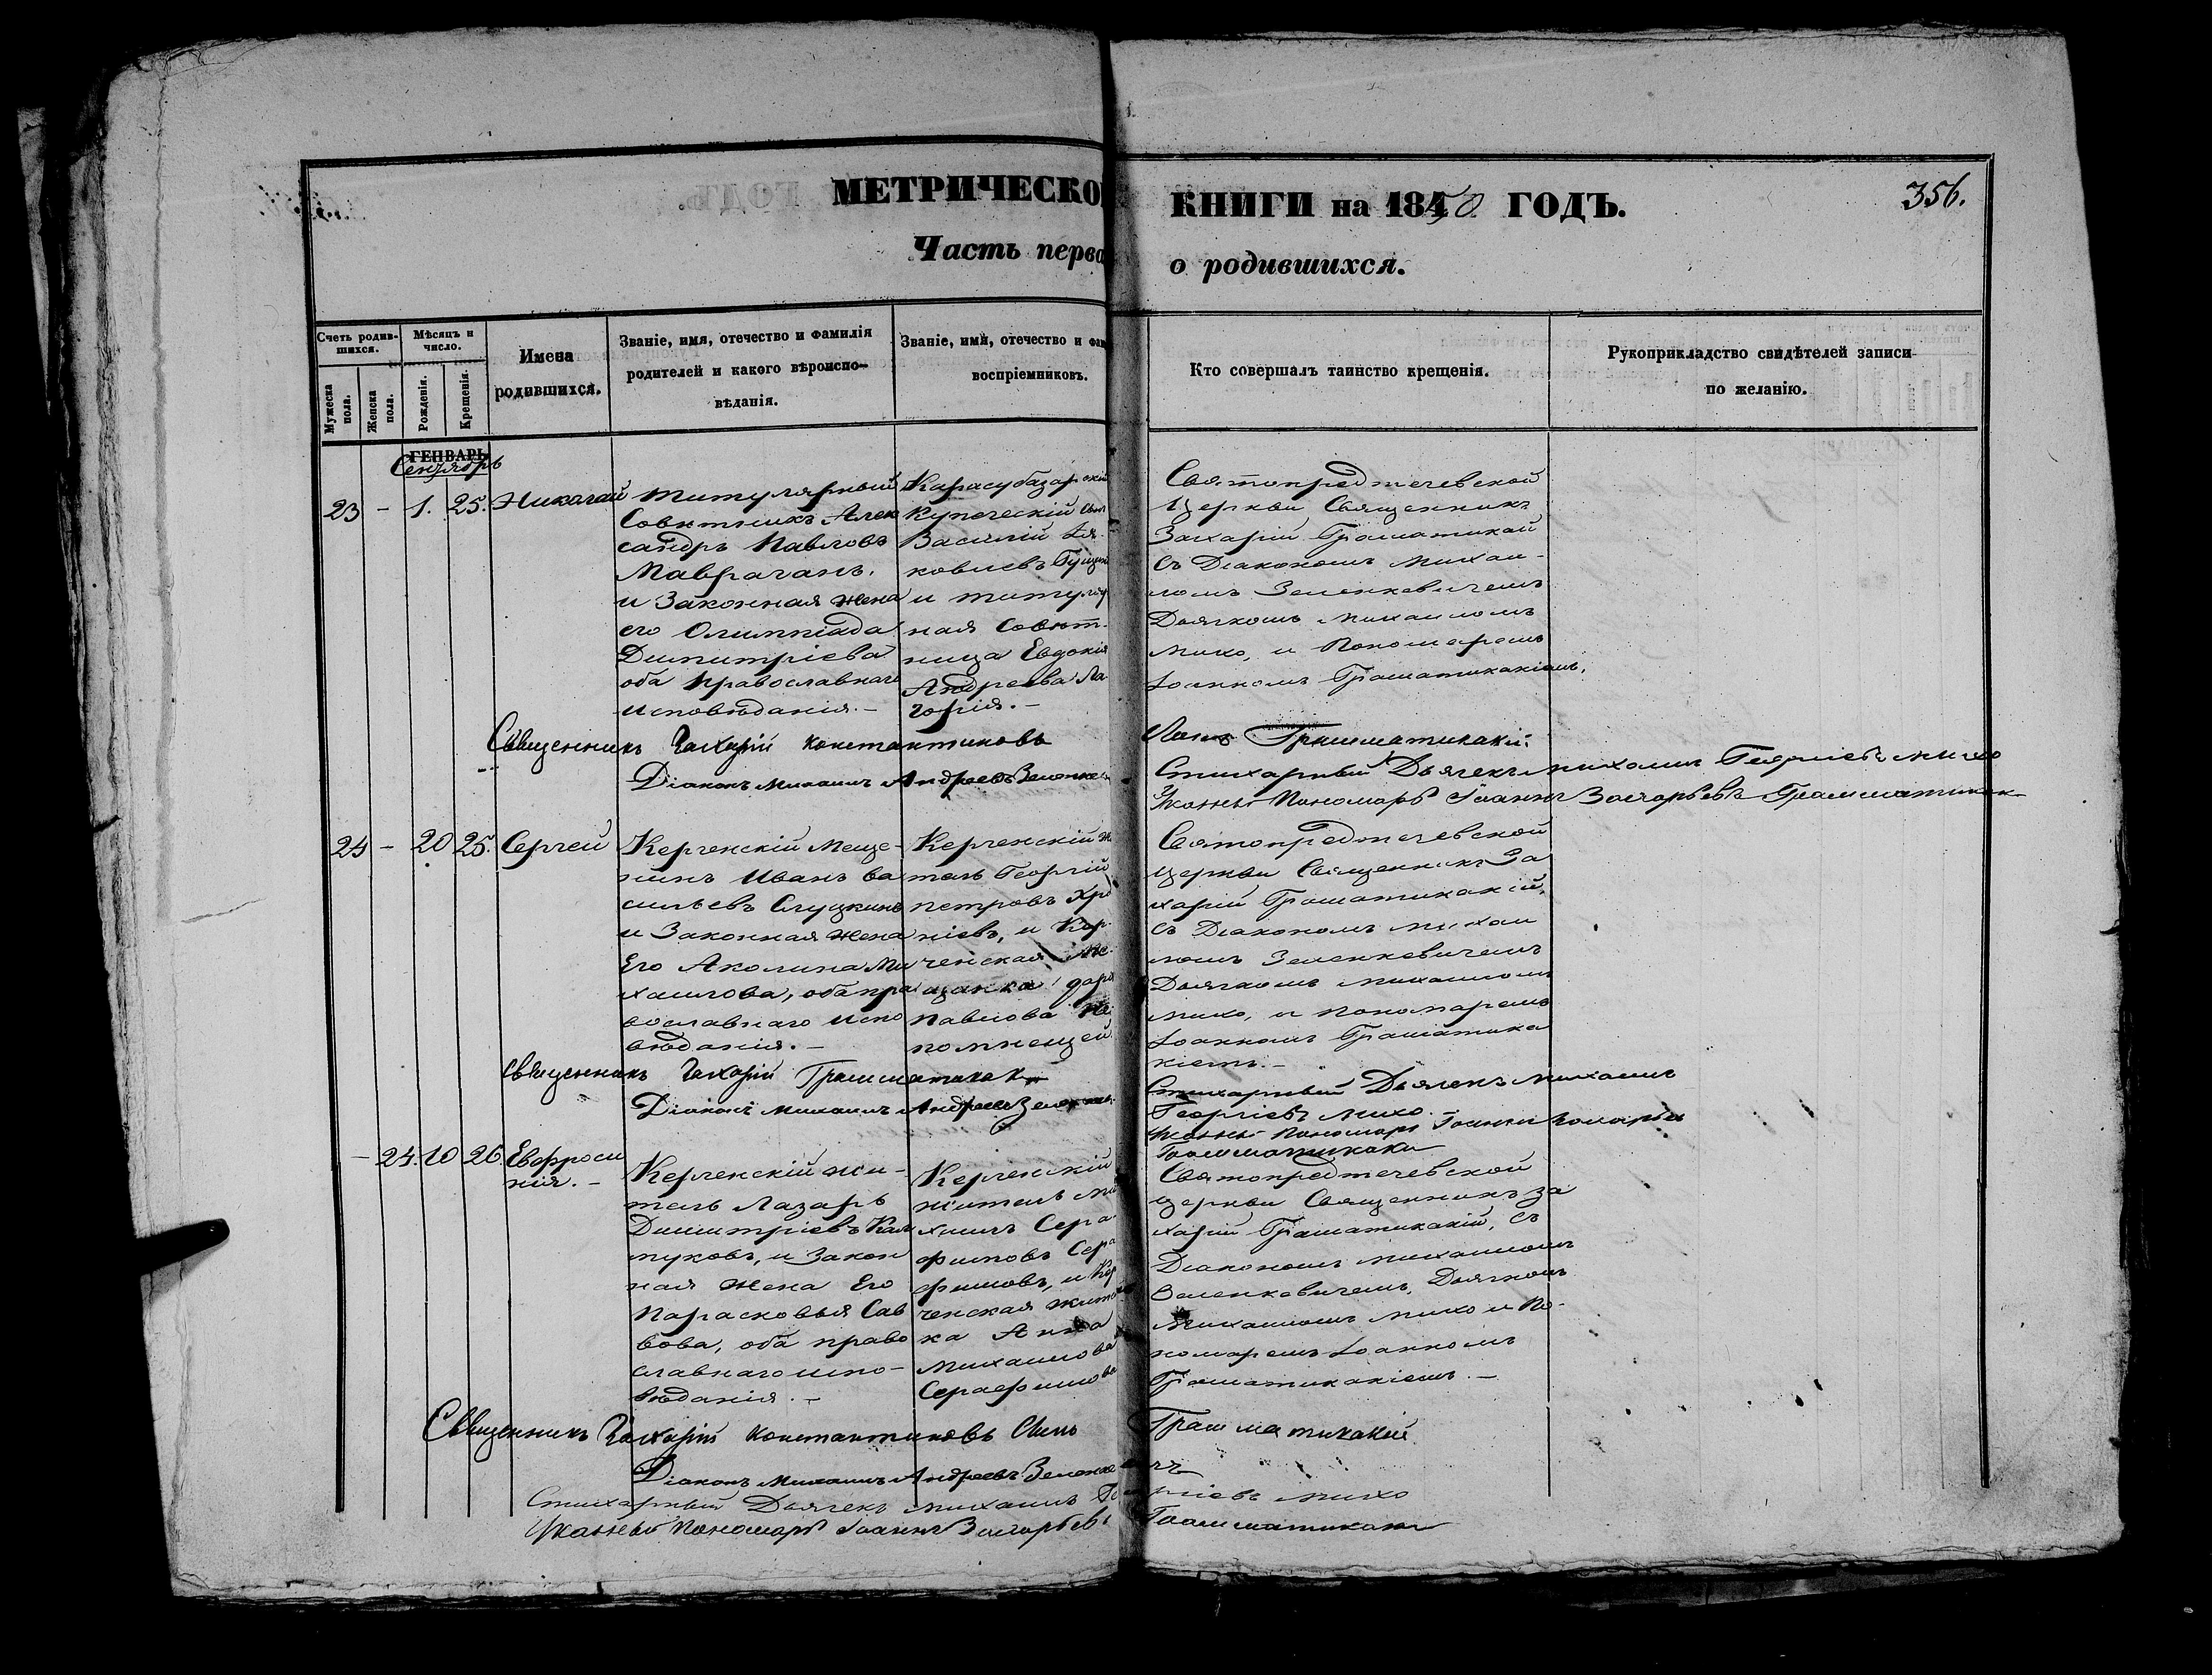 МЕТРИЧЕСКО КНИГИ на 1850. ГОДЪ.
356.
Часть перва о родившихся.
Счетъ родив-
шихся.
Мужеска
пола.
Женска
пола.
Мѣсяцъ и
число.
Рожденія.
Крещенія.
Имена
родившихся.
Званіе, имя, отечество и фамилія
родителей и какого вѣроиспо-
вѣданія.
Званіе, имя, отечество и фам
воспріемниковъ.
Кто совершалъ таинство крещенія.
Рукоприкладство свидѣтелей записи
по желанію.
ГЕНВАРЬ
Сентябрь
23 - 1. 25. Николай
Титулярный
Совѣтникъ Алек
сандръ Павловъ
Маврагань.
и Законная жена
его Олимпіада
Димитріева
оба православнаго
исповѣданія. -
Карасубазарскій
Купеческій
Василій Яя-
ковлевъ
и титуляр
ная Совѣт-
ница Евдокія
Андреева Ла-
горія. -
Святопредтечевской
Церкви Священникъ
Захарій Граматикакій
съ Діакономъ Михаи-
ломъ Зеленкевичемъ
Дьячкомъ Михаиломъ
Михо, и Пономаремъ
Іоанномъ Граматикакіемъ.
Священникъ Захарій Константиновъ
Граматикакій.
Діаконъ Михаилъ Андреевъ Зеленке
Стихарный Дьячекъ Михаилъ Георгіевъ Михо
Пономарь Іоаннъ Захарьевъ Грамматикак
24 - 20 25. Сергей
Керченскій меща-
нинъ Иванъ Ва
сильевъ Слуцкинъ
и Законная жена
Его Акилина Ми
хаилова, оба пра
вославнаго испо
вѣданія. -
Керченскій ж
тель Георгій
Петровъ Хр
ніевъ, и Кер-
ченская мѣ-
щанка Дар
Павлова Не
помнещей
Святопредтечевской
Церкви Священникъ За
харій Граматикакій,
съ Діакономъ Михаи
ломъ Зеленкевичемъ
Дьячкомъ Михаиломъ
Михо, и Пономаремъ
Іоанномъ Граматика
кіемъ. -
Священникъ Захарій Грамматикаки
Діаконъ Михаилъ Андреевъ Зеленке
Стихарный Дьячекъ Михаилъ
Георгіевъ Михо
Пономарь Іоаннъ Захарьев
Грамматикаки
- 24. 10 26. Евфроси
нія. -
Керченскій жи-
тель Лазарь
Димитріевъ Кал
пуковъ, и Закон
ная жена Его
Парасковья Сав
вова, оба право
славнаго испо-
вѣданія. -
Керченскій
житель Ми
хаилъ Сера
фимовъ Сера
фимовъ, и Кер
ченская жите
ка Анна
Михаилова
Серафимова
Святопредтечевской
Церкви Священникъ За
харій Граматикакій, съ
Діакономъ Михаиломъ
Зеленкевичемъ, Дьячкомъ
Михаиломъ Михо и По-
номаремъ Іоанномъ
Граматикакіемъ. -
Священникъ Захарій Константиновъ Сынъ Грамматикакій
Діаконъ Михаилъ Андреевъ Зеленке
Стихарный Дьячекъ Михаилъ Ге ргіевъ Михо
Пономарь Іоаннъ Захарьевъ Грамматикаки